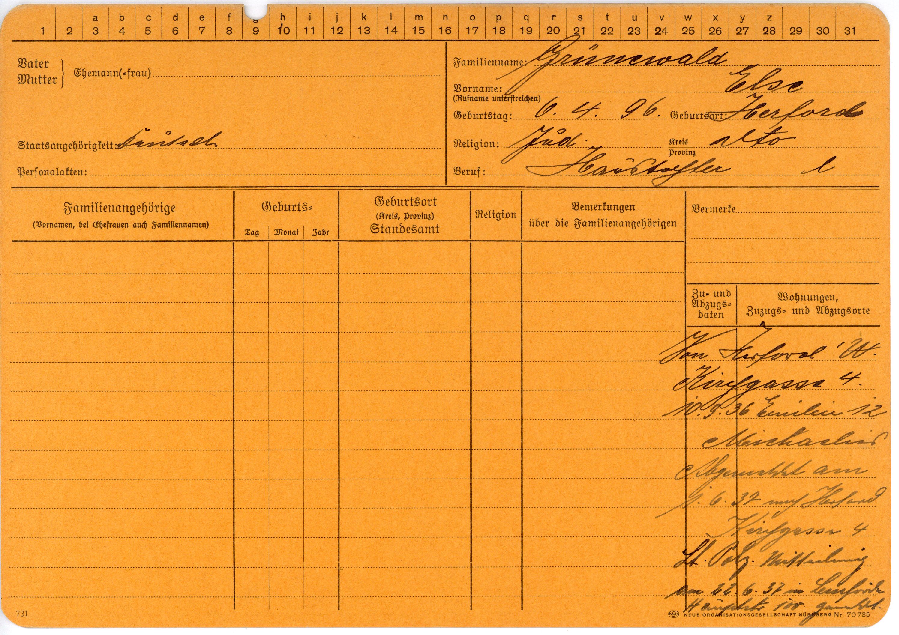 a b c d e f g h i k l m n o p q r s t u v w x y z
1 2 3 4 5 6 7 8 9 10 11 12 13 14 15 16 17 18 19 20 21 22 23 24 25 26 27 28 29 30 31
Vater
Mutter
Ehemann(-frau)
Staatsangehörigkeit: deutsch
Personalakten:
Familienname: Grünewald
Vorname: Else
(Rufname unterstreichen)
Geburtstag: 6. 4. 96. Geburtsort: Herford
Religion: Jüd. Kreis dto
Provinz
Beruf: Haustochter l
Familienangehörige
(Vornamen, bei Ehefrauen auch Familiennamen)
Geburts-
Tag Monat Jahr
Geburtsort
(Kreis, Provinz)
Standesamt
Religion
Bemerkungen
über die Familienangehörigen
Vermerke
Zu- und
Abzugs-
daten
Wohnungen,
Zuzugs- und Abzugsorte
Von Herford W.
4.
36 12
Abgemeldet am
6. 37 nach Herford
4
St. Polz. Mitteilung
am 22. 6. 37 in
731
NEUE ORGANISATIONSGESELLSCHAFT NÜRNBERG Nr.